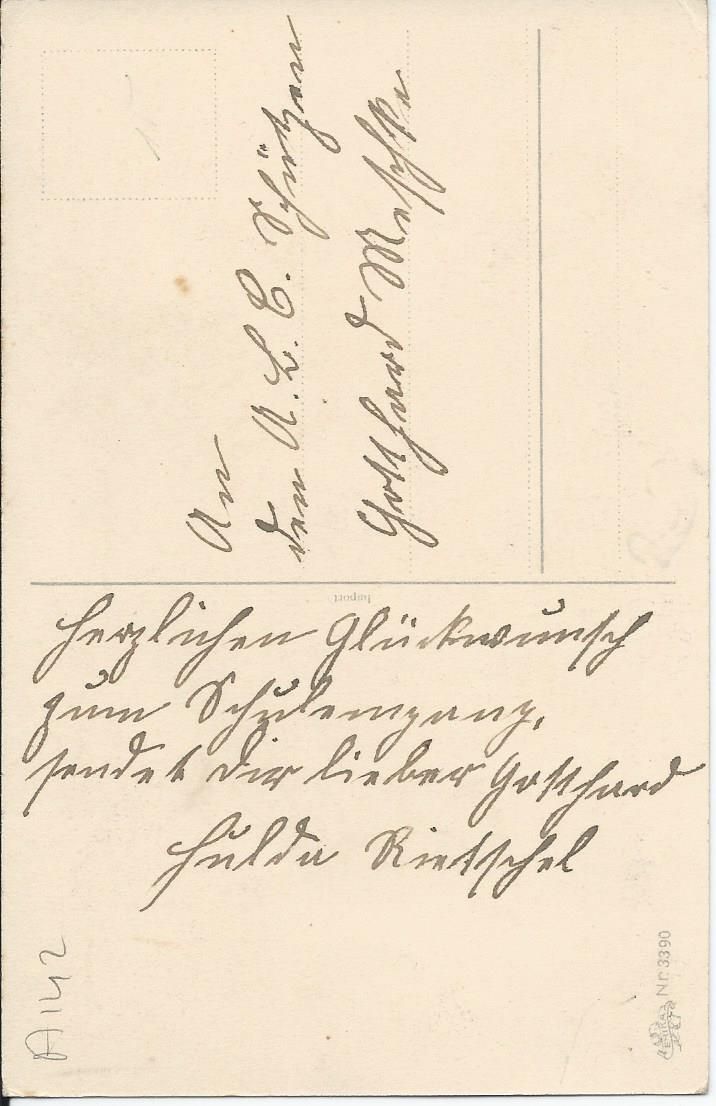 An
den A. B. C. Schützen
Gotthard Meschke
Import
Herzlichen Glückwunsch
zum Schulemgang,
sendet dir lieber Gotthard
Hulda Rietschel
A 142
Nr. 3390